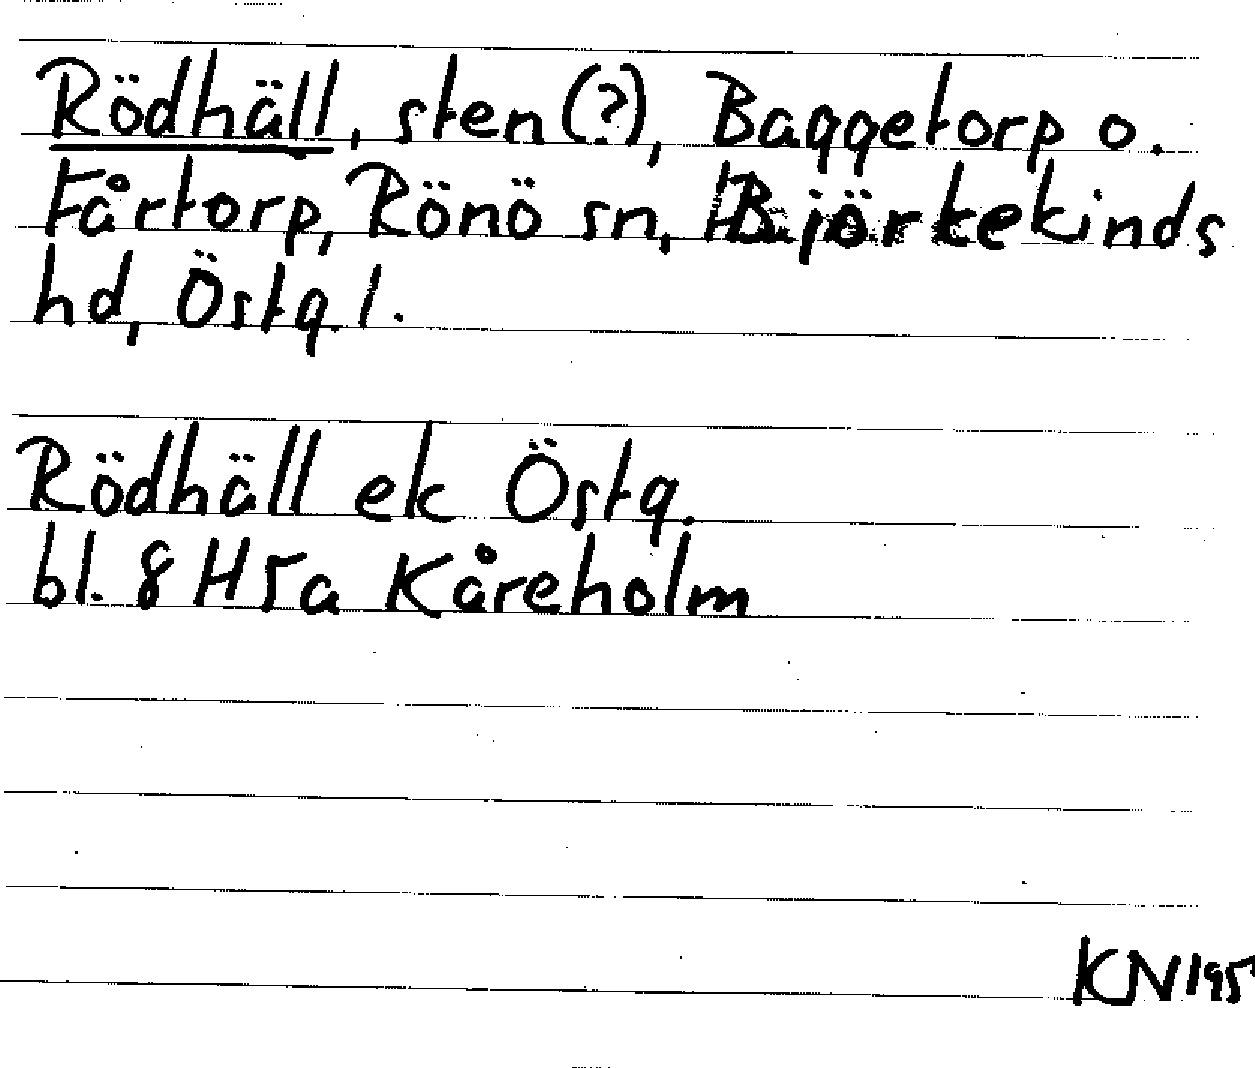 Rödhäll, sten (?), Baggetorp o.
Fårtorp, Rönö sn, Björkekinds
hd, Östg. l.
Rödhäll ek Östg.
bl. 8 H5a Kåreholm
KN 195